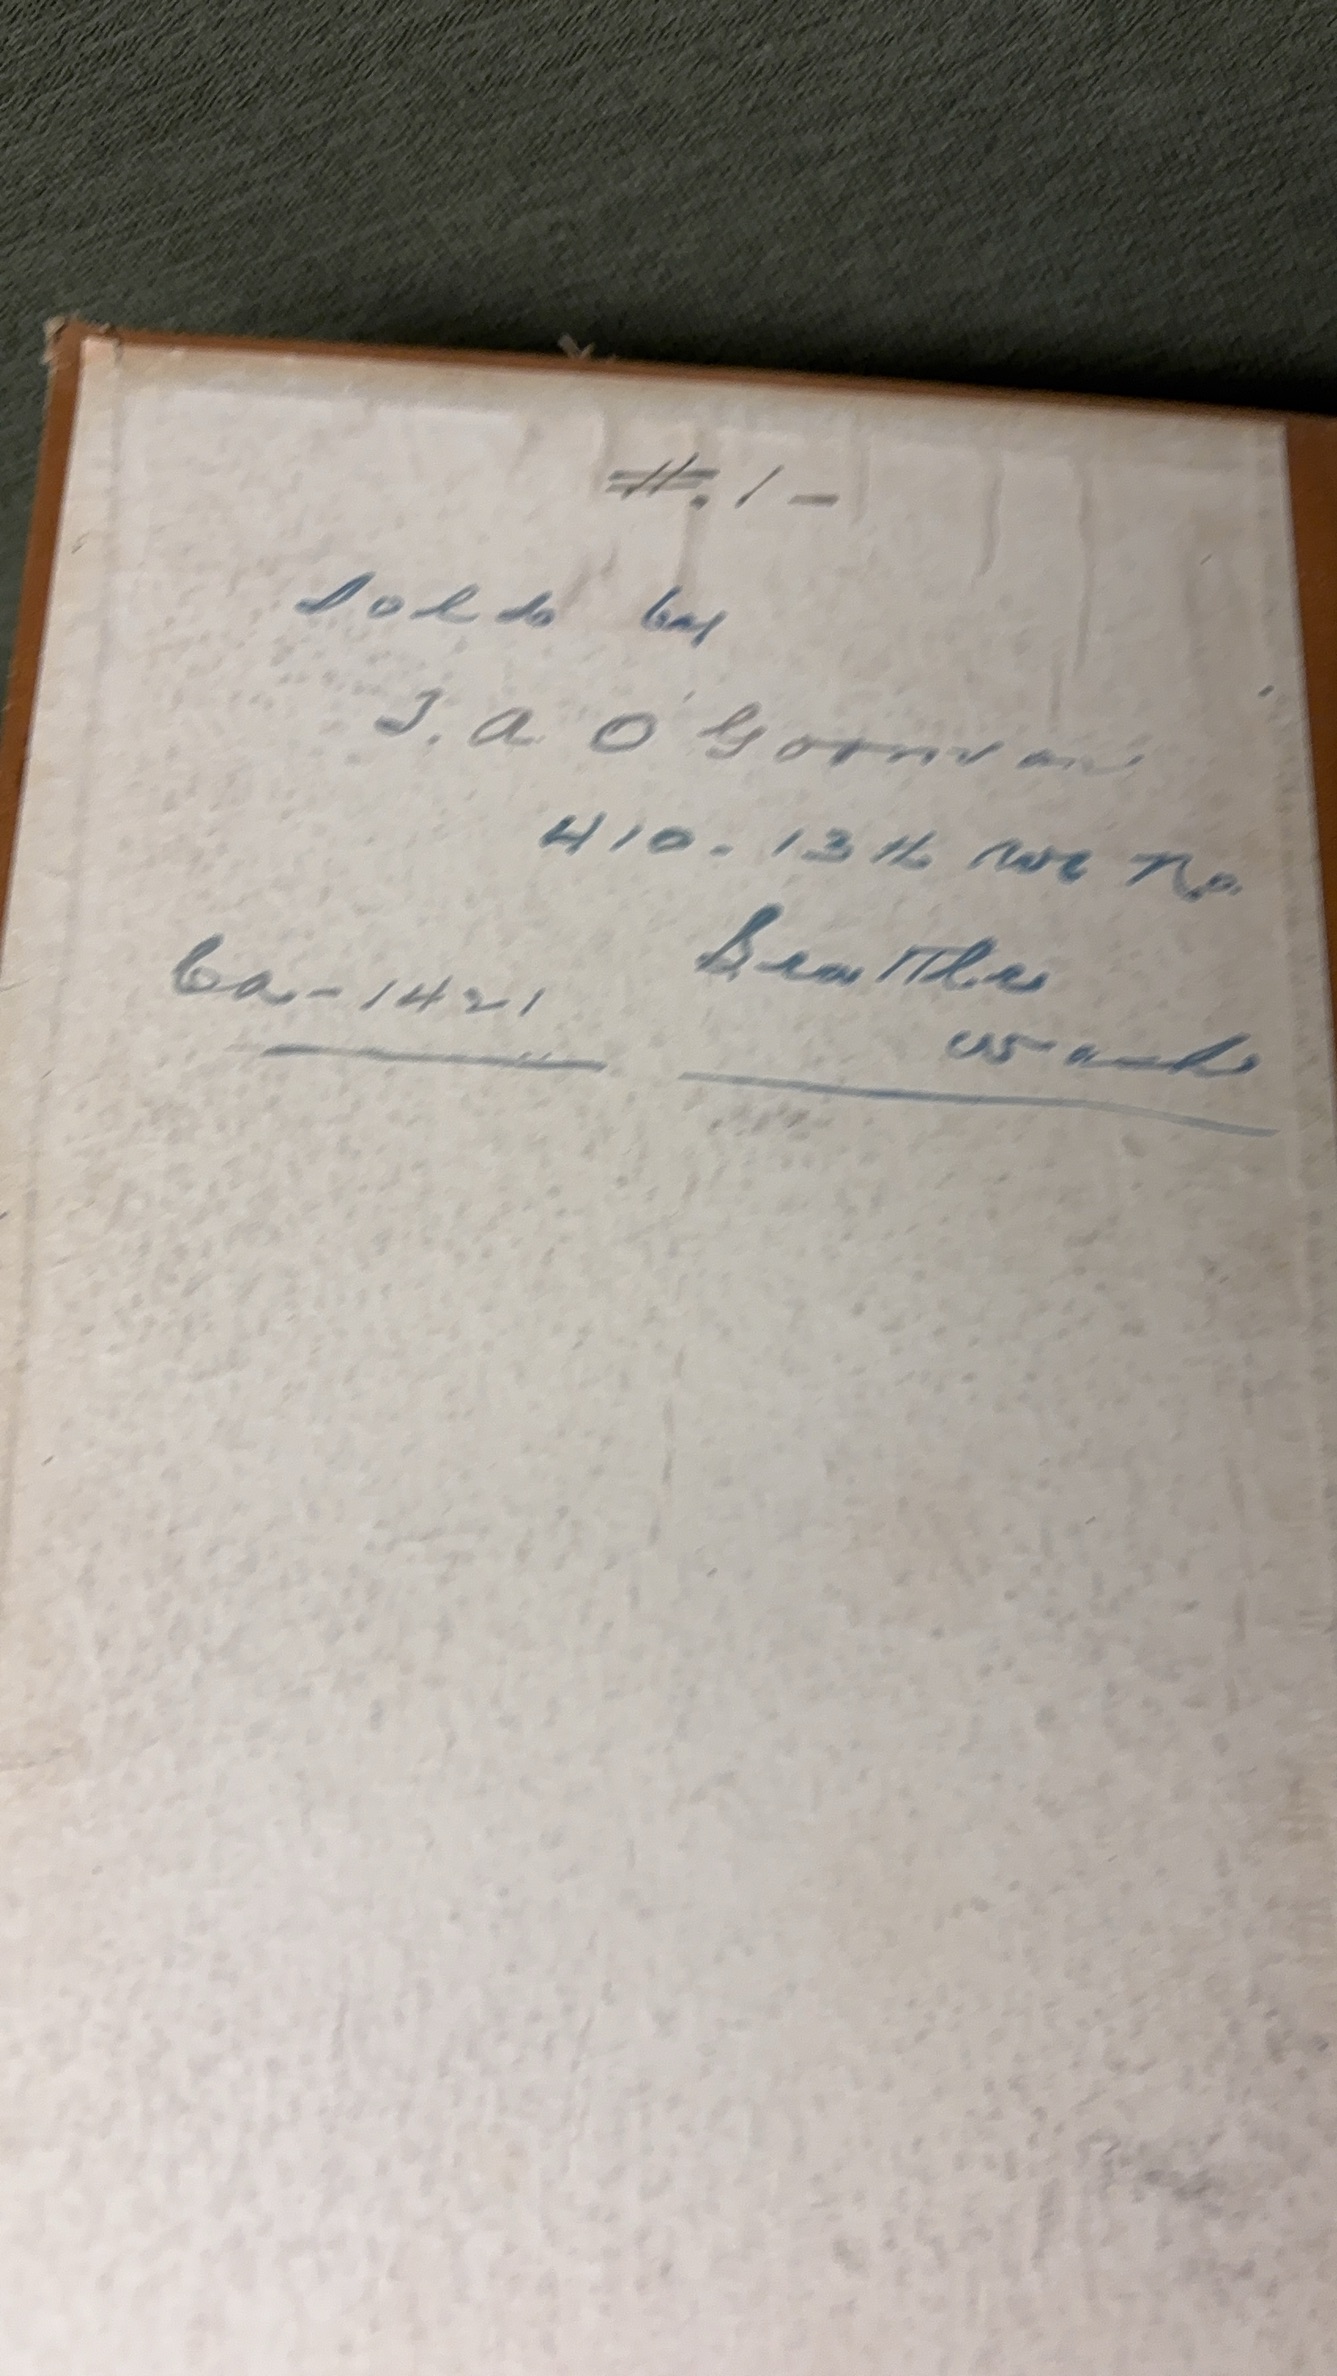 #. 1 -
Sold by
J. A. O'Gorman
410 - 13th Ave No.
Ca - 1421 Seattle
Wash